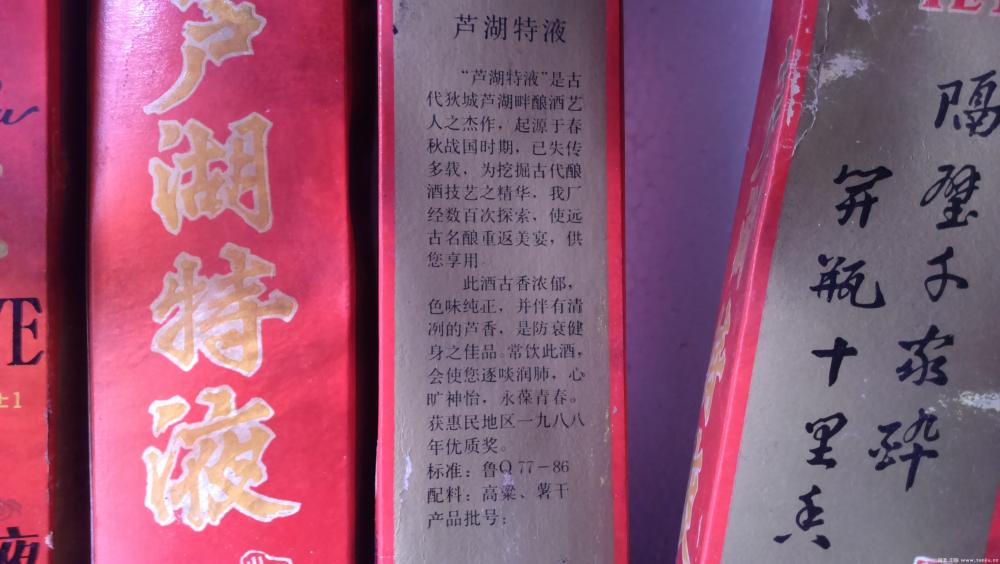 芦湖特液
芦湖特液
“芦湖特液”是古
代狄城芦湖畔酿酒艺
人之杰作，起源于春
秋战国时期，已失传
多载，为挖掘古代酿
酒技艺之精华，我厂
经数百次探索，使远
古名酿重返美宴，供
您享用
此酒古香浓郁，
色味纯正，并伴有清
冽的芦香，是防衰健
身之佳品。常饮此酒，
会使您逐啖润肺，心
旷神怡，永葆青春。
获惠民地区一九八八
年优质奖。
标准：鲁Q 77－86
配料：高粱、薯干
产品批号：
隔壁千家醉
开瓶十里香